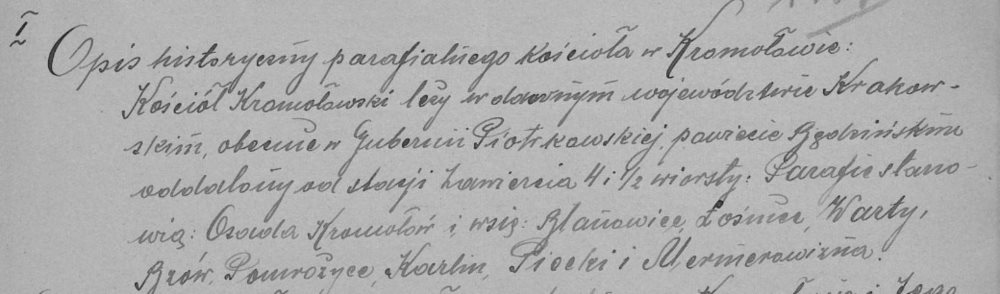 I
Opis historyczny parafialnego kościoła w Kromołowie:
Kościół Kromołowski leży w dawnym województwie Krakow-
skim, obecnie w Gubernii Piotrkowskiej, powiecie Będzińskim
oddalony od stacji Zawiercia 4 i 1/2 wiorsty: Parafie stano-
wią: Osada Kromołów i wsie: Blanowice, Łośnice, Warty,
Bzów, Pomrożyce, Karlin, Piecki i